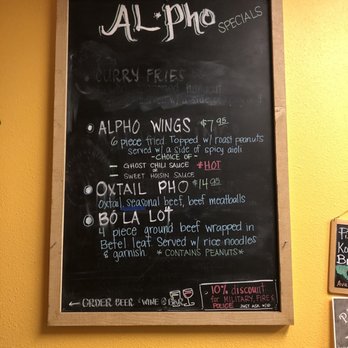 AL*Pho
SPECIALS
CURRY FRIES
ALPHO WINGS $7.95
6 piece fried Topped w/ roast peanuts
served w/ a side of spicy aioli
- CHOICE OF -
- GHOST CHILI SAUCE *HOT
- SWEET HOISIN SAUCE
OXTAIL PHO $14.95
Oxtail, seasonal beef, beef meatballs
BÓ LA LOT
4 piece ground beef wrapped in
Betel leaf. Served w/ rice noodles
& garnish. *CONTAINS PEANUTS*
← ORDER BEER & WINE
10% discount
for MILITARY, FIRE &
POLICE JUST ASK